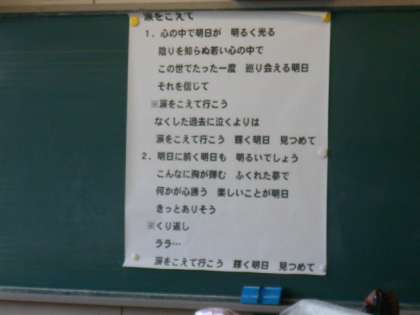 涙をこえて
1．心の中で明日が　明るく光る
陰りを知らぬ若い心の中で
この世でたった一度　巡り会える明日
それを信じて
※涙をこえて行こう
なくした過去に泣くよりは
涙をこえて行こう　輝く明日　見つめて
2．明日に続く明日も　明るいでしょう
こんなに胸が弾む　ふくれた夢で
何かが心誘う　楽しいことが明日
きっとありそう
※くり返し
ララ…
涙をこえて行こう　輝く明日　見つめて